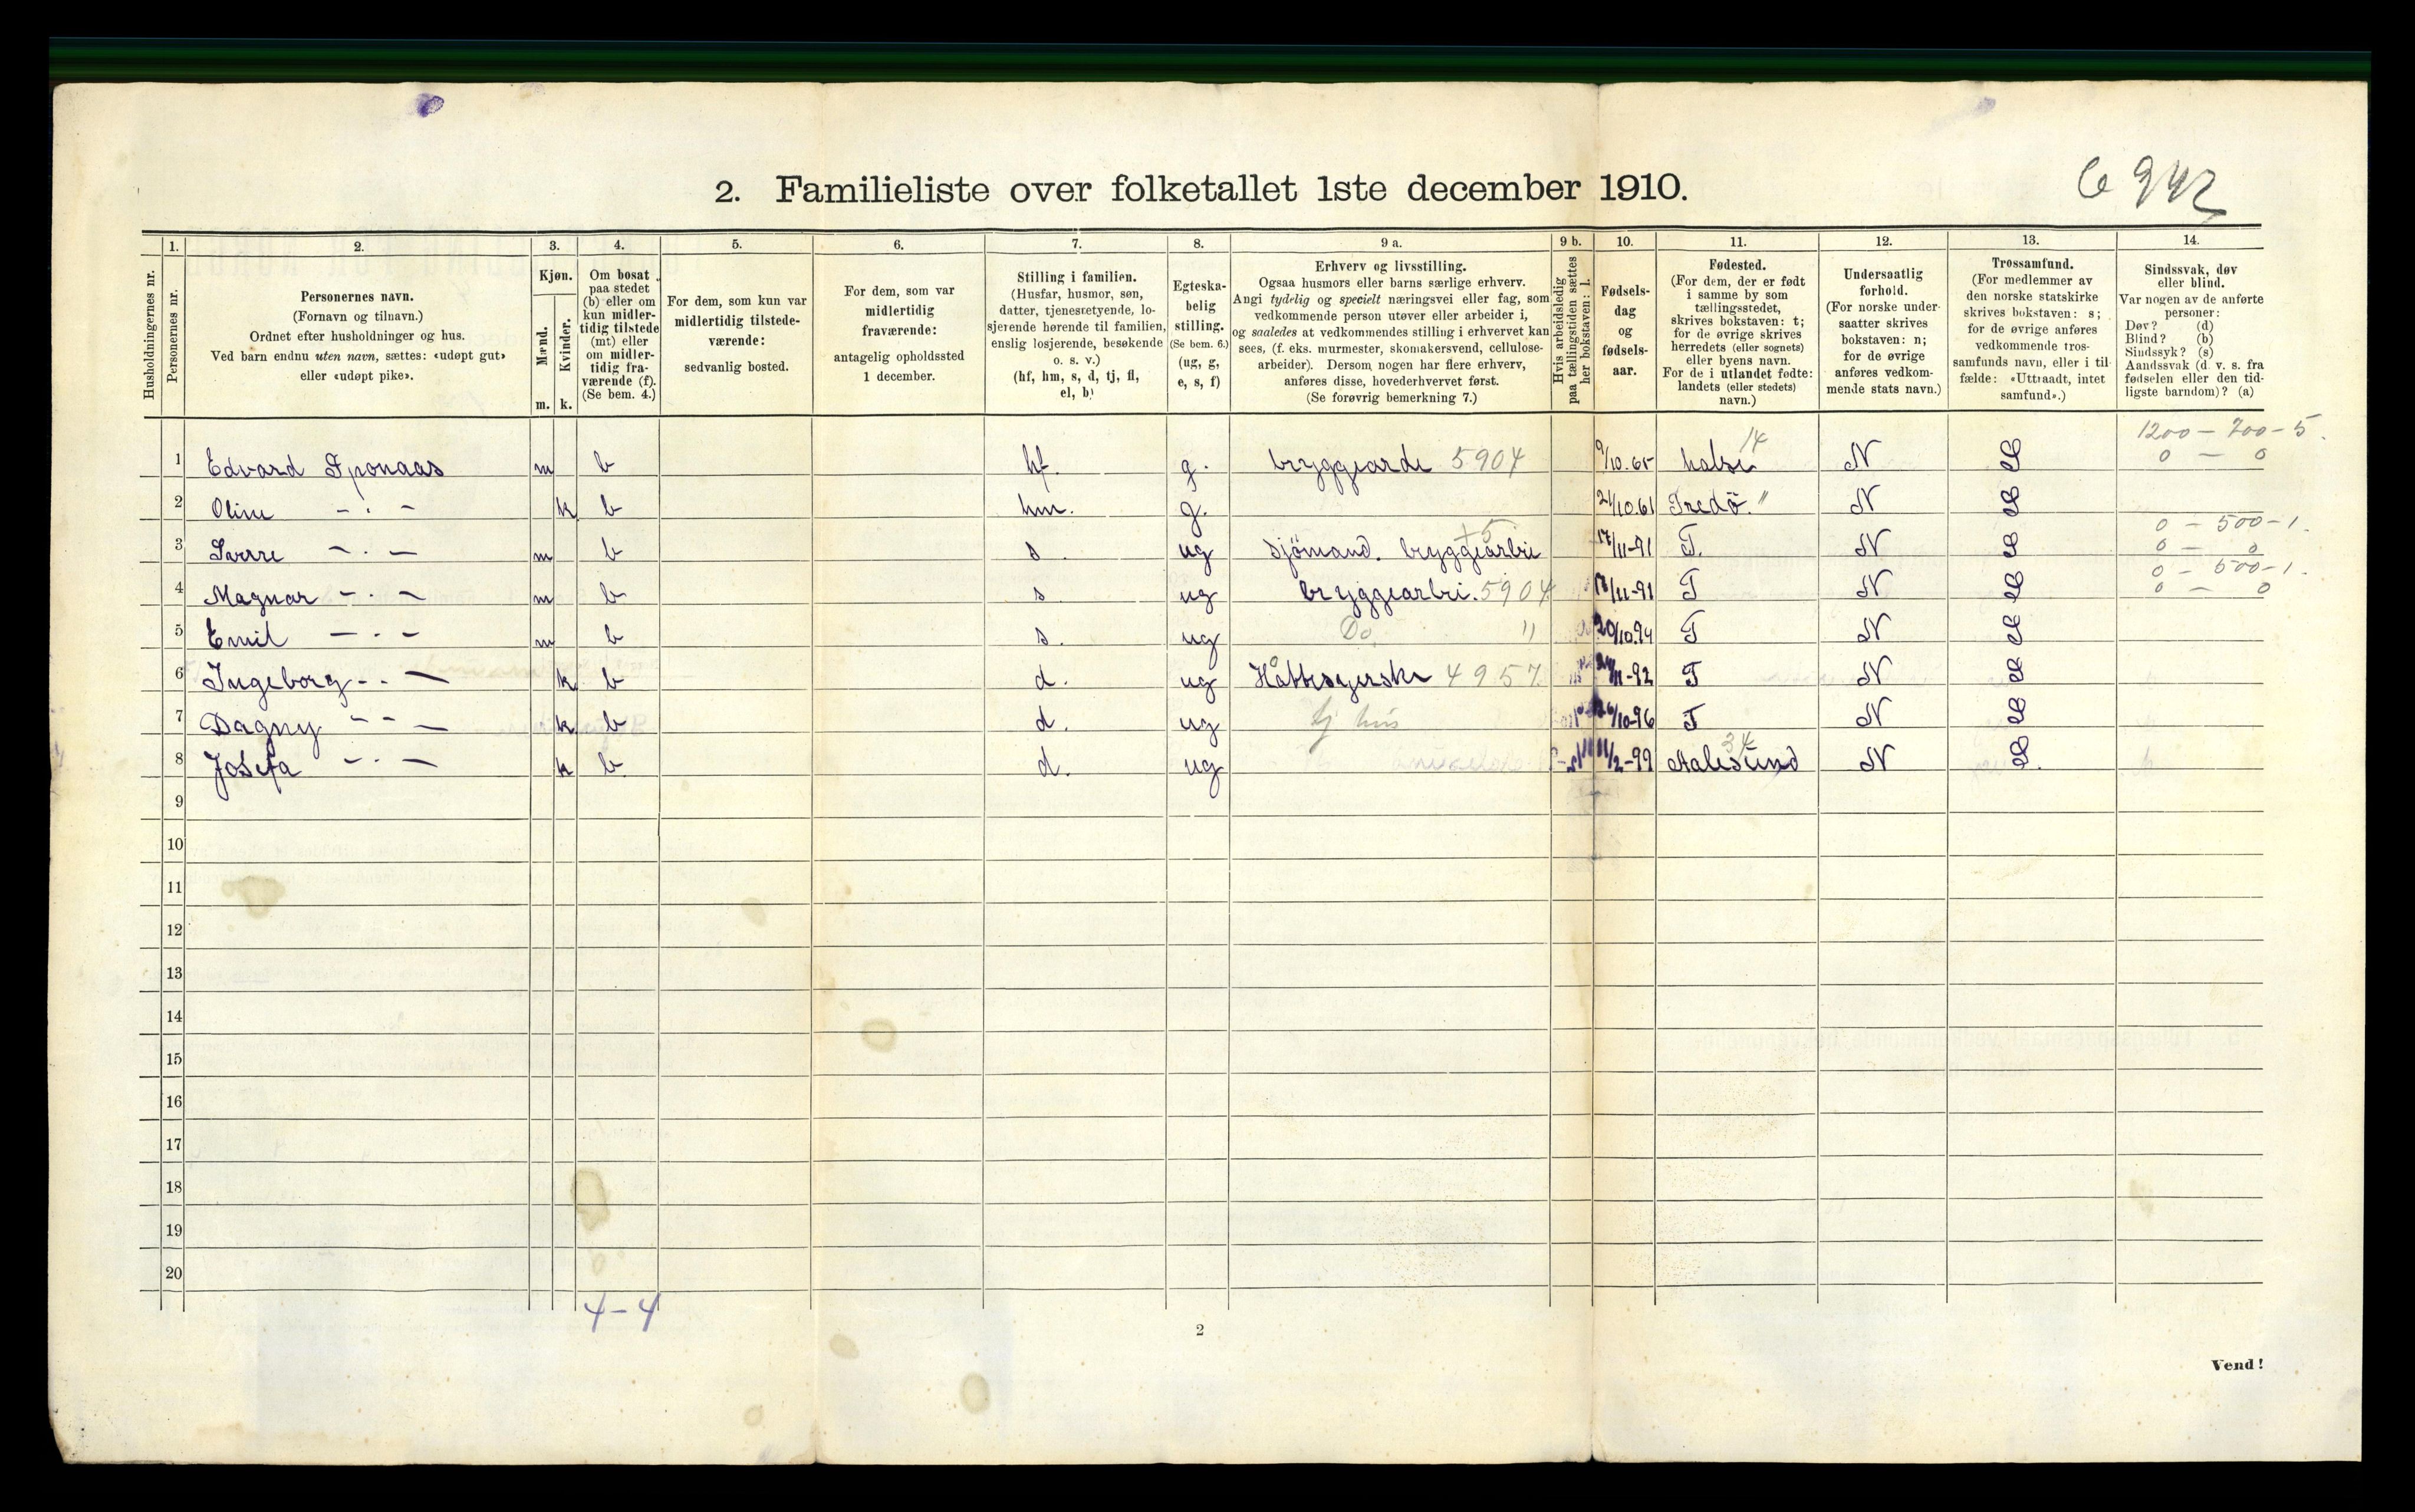 2. Familieliste over folketallet 1ste december 1910.
6942
1. 2. 3. 4. 5. 6. 7. 8. 9 a. 9 b. 10. 11. 12. 13. 14.
Husholdningernes nr.
Personernes nr.
Personernes navn.
(Fornavn og tilnavn.)
Ordnet efter husholdninger og hus.
Ved barn endnu uten navn, sættes: «udøpt gut»
eller «udøpt pike».
Kjøn.
Mænd.
Kvinder.
m. k.
Om bosat
paa stedet
(b) eller om
kun midler-
tidig tilstede
(mt) eller
om midler-
tidig fra-
værende (f).
(Se bem. 4.)
For dem, som kun var
midlertidig tilstede-
værende:
sedvanlig bosted.
For dem, som var
midlertidig
fraværende:
antagelig opholdssted
1 december.
Stilling i familien.
(Husfar, husmor, søn,
datter, tjenestetyende, lo-
sjerende hørende til familien,
enslig losjerende, besøkende
o. s. v.)
(hf, hm, s, d, tj, fl,
el, b)
Egteska-
belig
stilling.
(Se bem. 6.)
(ug, g,
e, s, f)
Erhverv og livsstilling.
Ogsaa husmors eller barns særlige erhverv.
Angi tydelig og specielt næringsvei eller fag, som
vedkommende person utøver eller arbeider i,
og saaledes at vedkommendes stilling i erhvervet kan
sees, (f. eks. murmester, skomakersvend, cellulose-
arbeider). Dersom nogen har flere erhverv,
anføres disse, hovederhvervet først.
(Se forøvrig bemerkning 7.)
Hvis arbeidsledig
paa tællingstiden sættes
her bokstaven: l.
Fødsels-
dag
og
fødsels-
aar.
Fødested.
(For dem, der er født
i samme by som
tællingsstedet,
skrives bokstaven: t;
for de øvrige skrives
herredets (eller sognets)
eller byens navn.
For de i utlandet fødte:
landets (eller stedets)
navn.)
Undersaatlig
forhold.
(For norske under-
saatter skrives
bokstaven: n;
for de øvrige
anføres vedkom-
mende stats navn.)
Trossamfund.
(For medlemmer av
den norske statskirke
skrives bokstaven: s;
for de øvrige anføres
vedkommende tros-
samfunds navn, eller i til-
fælde: «Uttraadt, intet
samfund».)
Sindssvak, døv
eller blind.
Var nogen av de anførte
personer:
Døv? (d)
Blind? (b)
Sindssyk? (s)
Aandssvak (d. v. s. fra
fødselen eller den tid-
ligste barndom)? (a)
14 1200 - 700 - 5.
1 Edvard Sponaas m b hf. g. bryggearde 5904 9/10.65 halse N S 0 - 0
2 Oline - . - k b hm. g. 21/10.61 Fredö. " N S
+5 0 - 500 - 1.
3 Sverre - . - m b s. ug sjömand. bryggearbei 17/11-91 T. N S 0 - 0
0 - 500 - 1.
4 Magnar - . - m b s ug bryggearbei. 5904 17/11-91 T N S 0 - 0
5 Emil - . - m b s. ug Do " 20/10.94 T N S
6 Ingeborg - . - k b d. ug Hattesyerske 4957 /11-92 T N S
7 Dagny - - - k b d. ug tj hus 6/10-96 T N S
34
8 Josefa - . - k b. d. ug 11/2-99 Aalesund N S.
9
10
11
12
13
14
15
16
17
18
19
20
4-4
2
Vend!